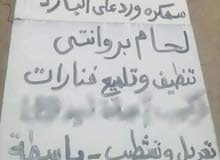 سمكره ورد على البارد
لحام بروانتى
تنظيف وتلميع فنارات
تبديل وتشطيب - باسطة